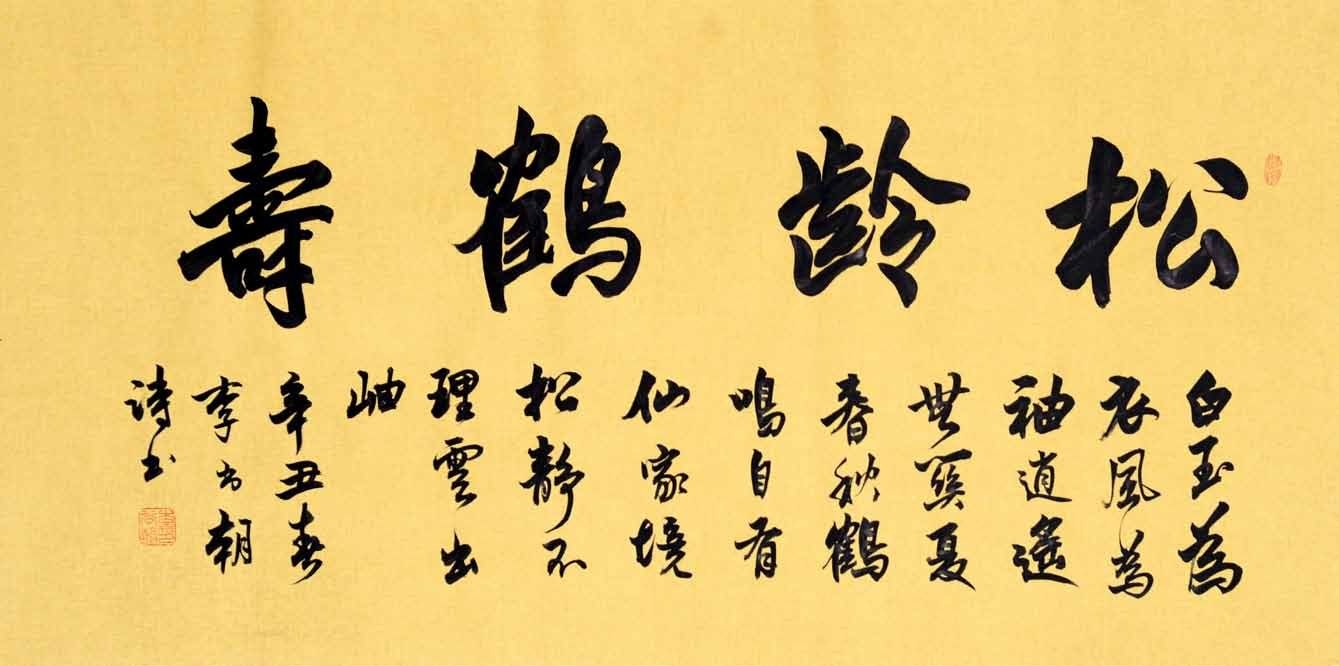 松齡鶴壽
白玉為
衣風為
袖逍遙
世夏
春秋鶴
鳴自有
仙家境
松靜不
理雲出
岫
辛丑春
李朝
诗书